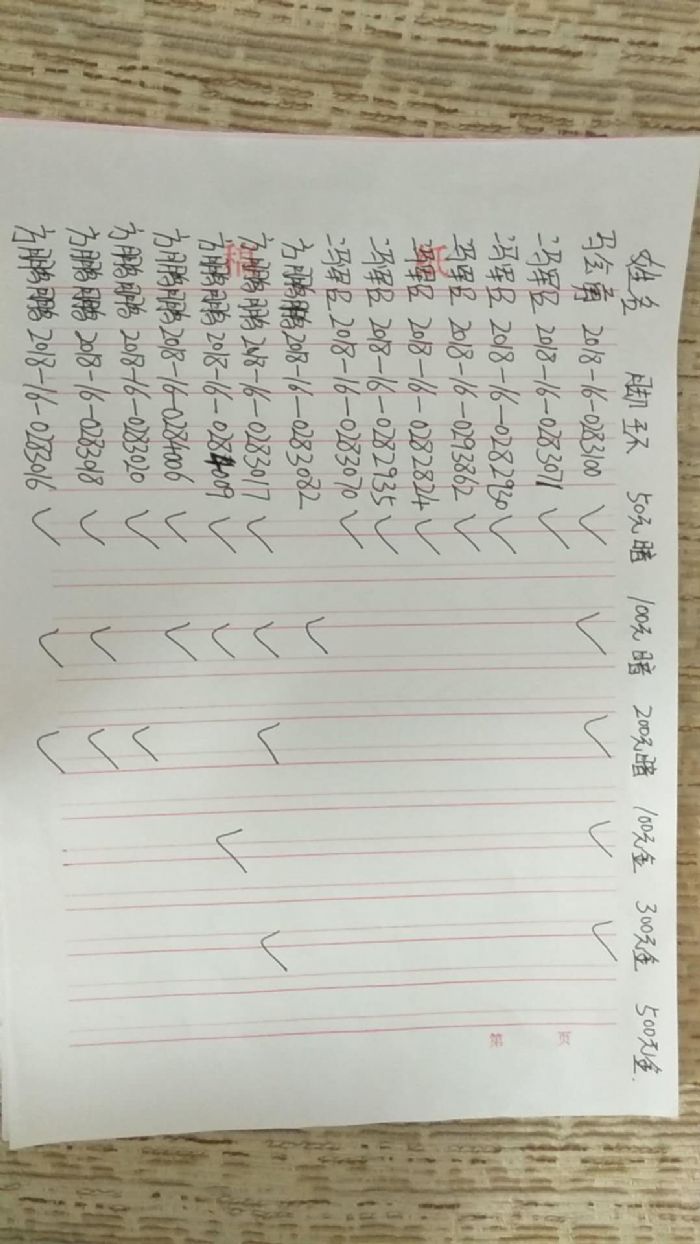 姓名 脚环 50元暗 100元暗 200元暗 100元全 300元全 500元全
马会勇 2018-16-0283100 ✓ ✓ ✓ ✓ ✓
冯 2018-16-0283071 ✓
冯 2018-16-0282930 ✓
冯 2018-16-0293862 ✓
冯 2018-16-0282824 ✓
冯 2018-16-0282935 ✓
冯 2018-16-0283070 ✓
方鹏鹏 2018-16-0283082 ✓
方鹏鹏 2018-16-0283017 ✓ ✓ ✓ ✓
方鹏鹏 2018-16-0284009 ✓ ✓ ✓
方鹏鹏 2018-16-0284006 ✓ ✓
方鹏鹏 2018-16-0283020 ✓ ✓
方鹏鹏 2018-16-0283018 ✓ ✓ ✓
方鹏鹏 2018-16-0283016 ✓ ✓ ✓
页